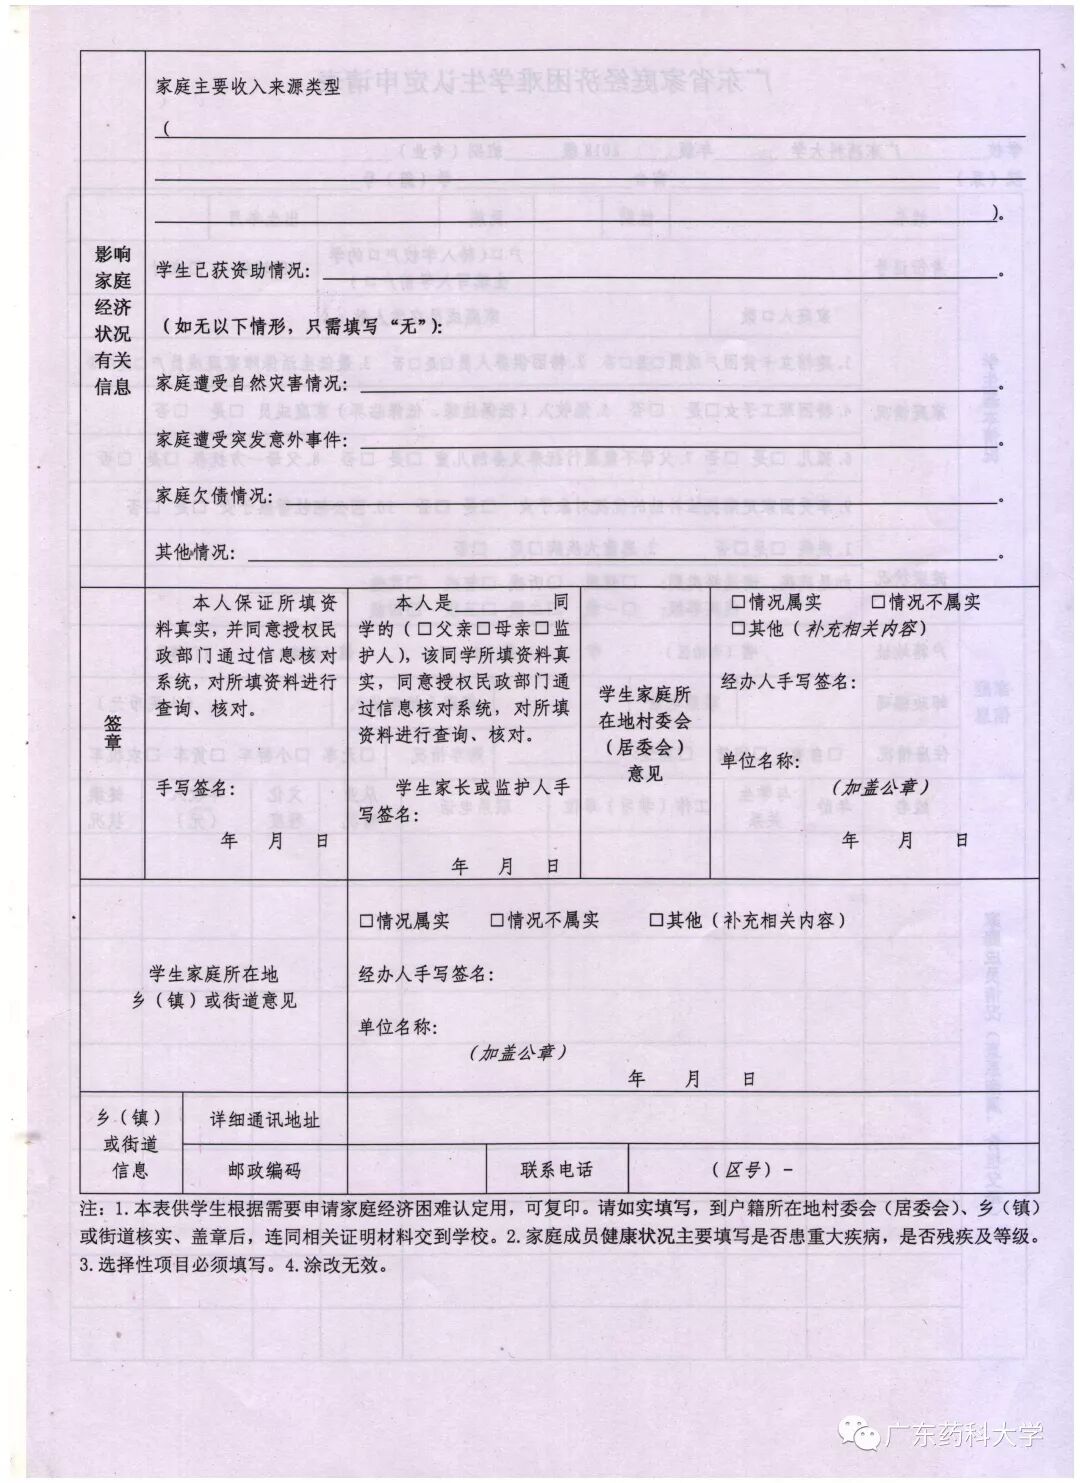 影响
家庭
经济
状况
有关
信息
家庭主要收入来源类型
（
）。
学生已获资助情况：。
（如无以下情形，只需填写“无”）：
家庭遭受自然灾害情况：。
家庭遭受突发意外事件：。
家庭欠债情况：。
其他情况：。
签
章
本人保证所填资
料真实，并同意授权民
政部门通过信息核对
系统，对所填资料进行
查询、核对。
手写签名：
年 月 日
本人是 同
学的（□父亲□母亲□监
护人），该同学所填资料真
实，同意授权民政部门通
过信息核对系统，对所填
资料进行查询、核对。
学生家长或监护人手
写签名：
年 月 日
学生家庭所
在地村委会
（居委会）
意见
□情况属实 □情况不属实
□其他（补充相关内容）
经办人手写签名：
单位名称：
（加盖公章）
年 月 日
学生家庭所在地
乡（镇）或街道意见
□情况属实 □情况不属实 □其他（补充相关内容）
经办人手写签名：
单位名称：
（加盖公章）
年 月 日
乡（镇）
或街道
信息
详细通讯地址
邮政编码
联系电话
（区号）-
注：1.本表供学生根据需要申请家庭经济困难认定用，可复印。请如实填写，到户籍所在地村委会（居委会）、乡（镇）
或街道核实、盖章后，连同相关证明材料交到学校。2.家庭成员健康状况主要填写是否患重大疾病，是否残疾及等级。
3.选择性项目必须填写。4.涂改无效。
广东药科大学